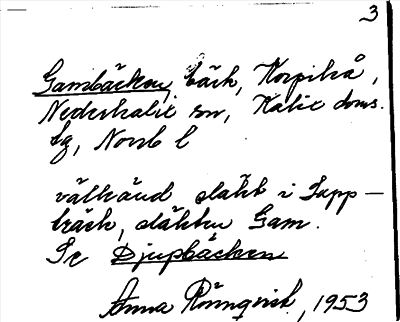 3
Gambäcken, bäck, Korpikå,
Nederkalix sn, Kalix doms.
lg, Norrb l
välkänd släkt i Lapp-
bäck, släkten Gam.
Se Djupbäcken
Anna Rönnqvist, 1953